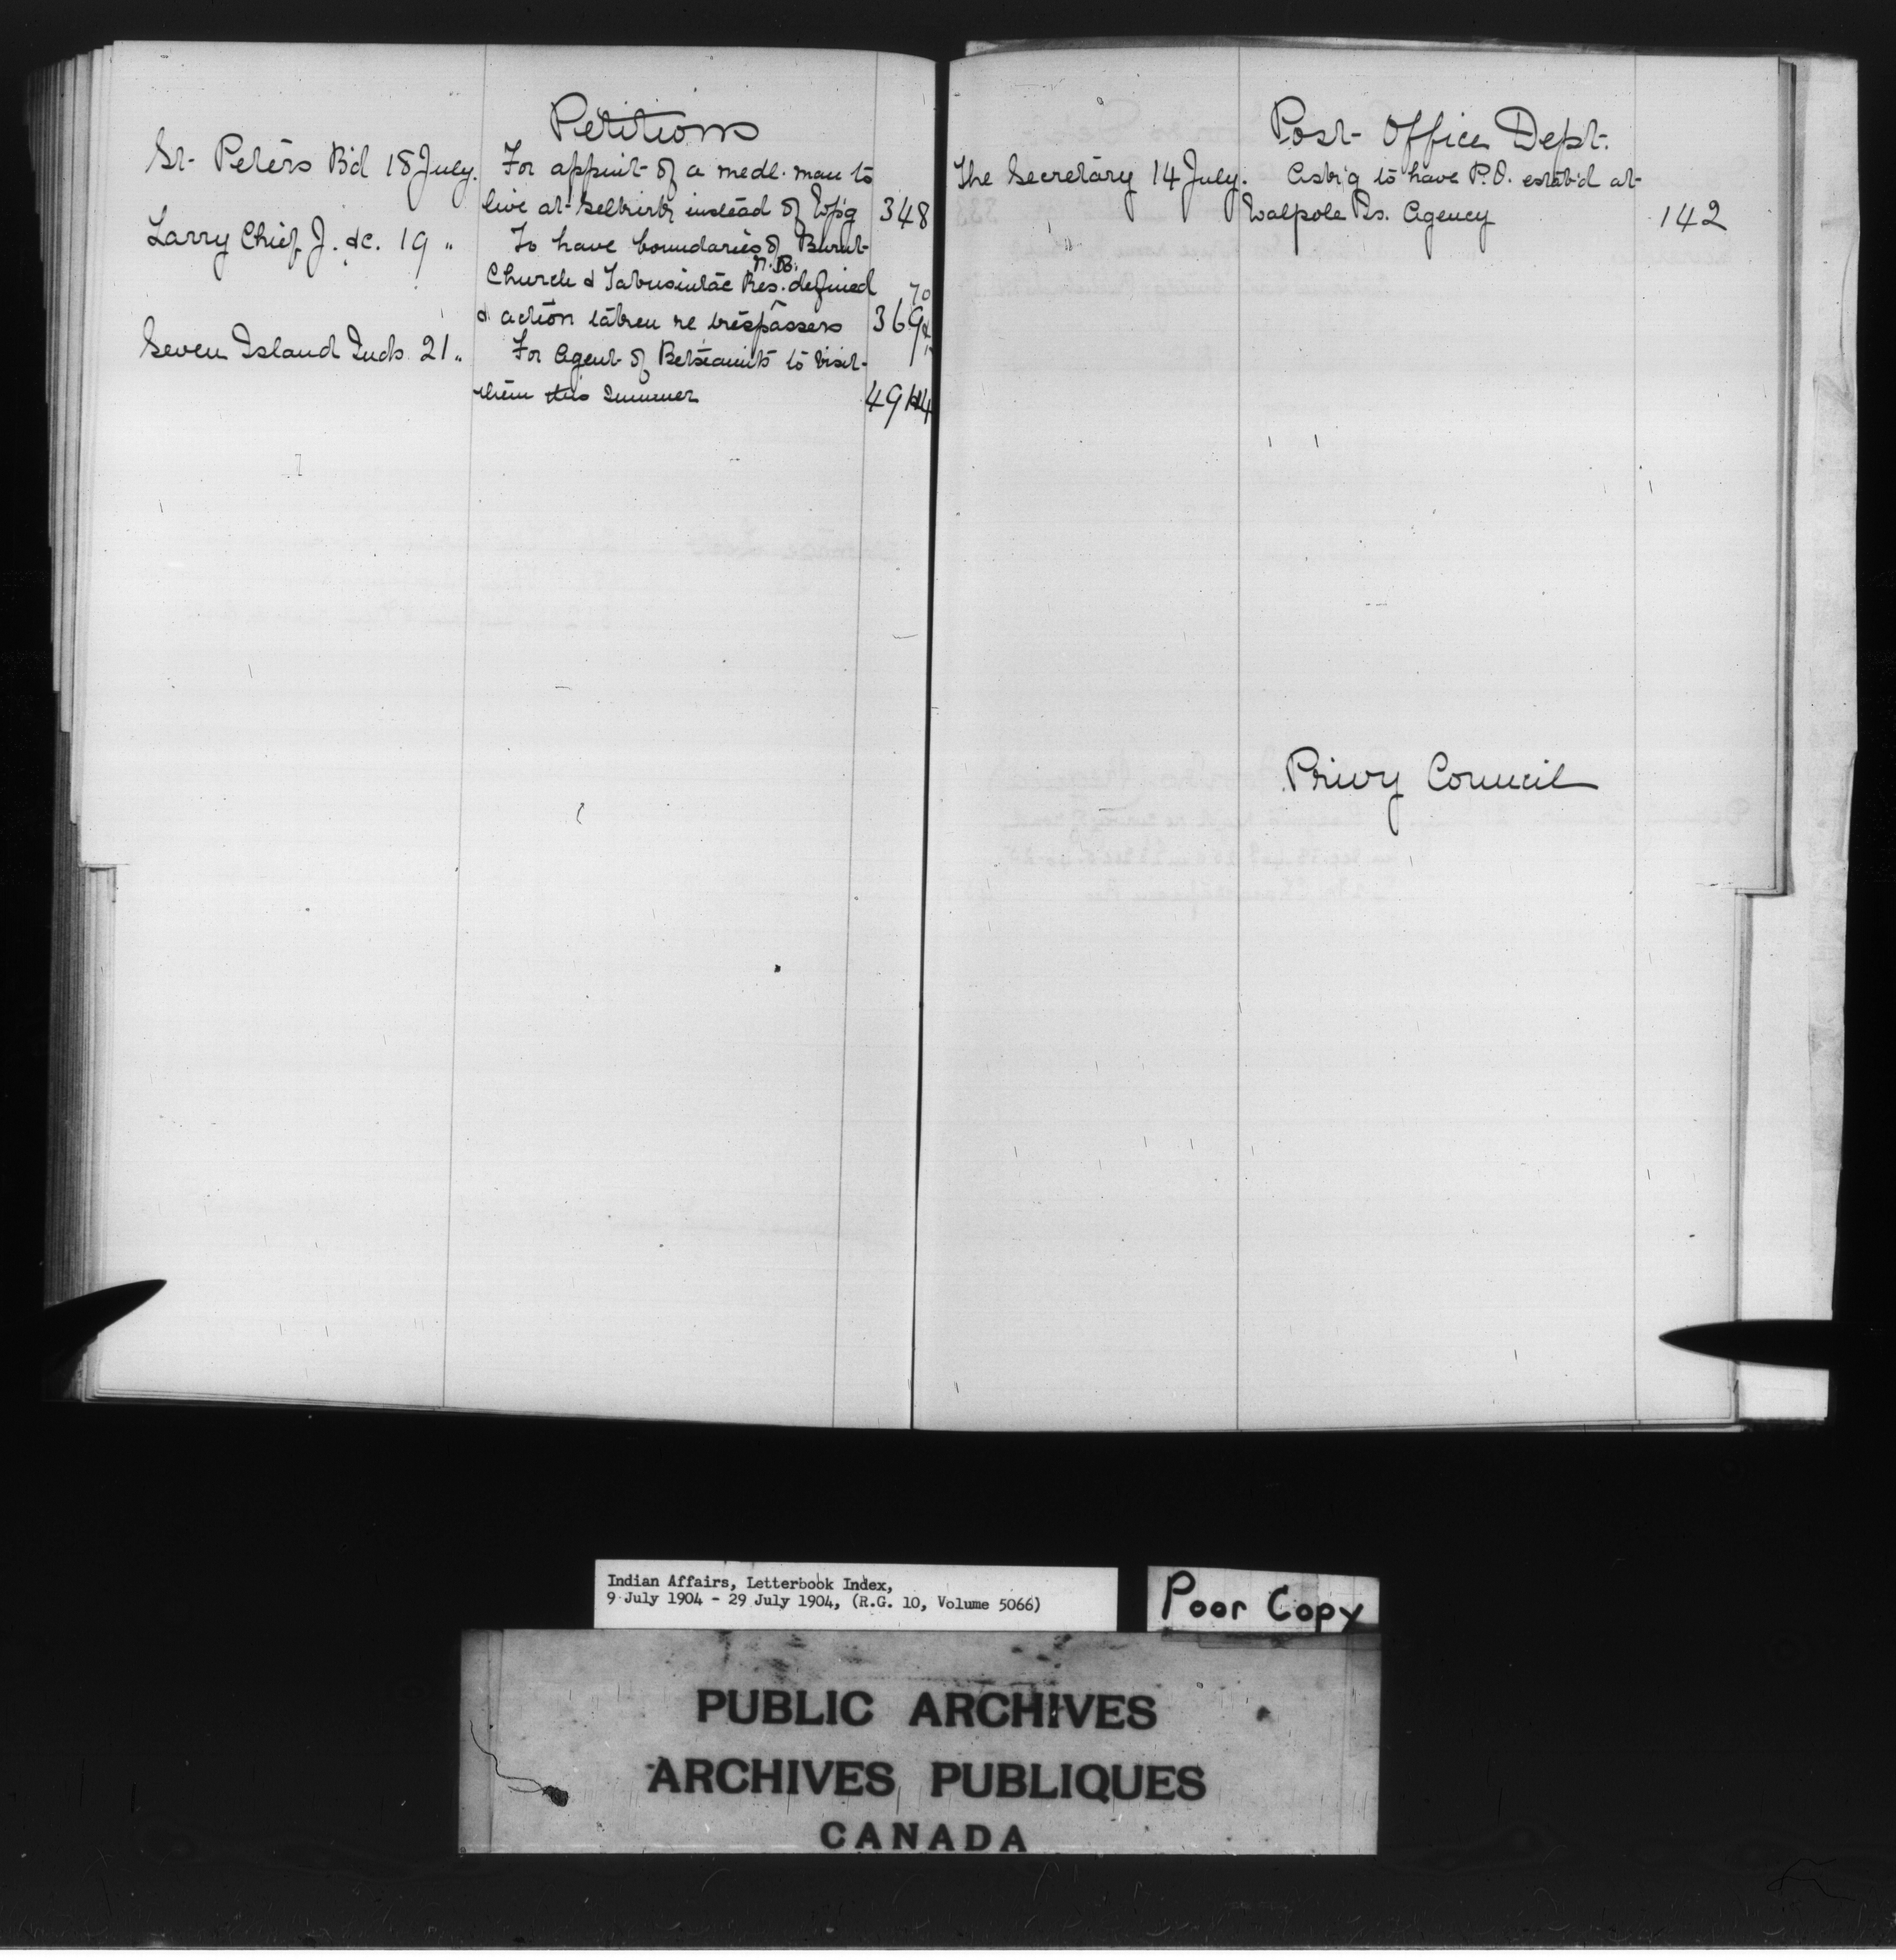 Petitions
St. Peters B'd 18 July. For appint of a medl. man to
live at Selkirk instead of Wp'g 348
Larry Chief J. &c. 19 " To have boundaries of Burnt
N.B.
Church & Tabusintac Res. defined
& action taken re trespassers 369 & 70
Seven Island Inds. 21 " For Agent of Betsiamits to visit
them this summer 494
Post Office Dept.
The Secretary 14 July. Ask'g to have P.O. estab'd at
Walpole Is. Agency 142
Privy Council
Indian Affairs, Letterbook Index,
9 July 1904 - 29 July 1904, (R.G. 10, Volume 5066)
Poor Copy
PUBLIC ARCHIVES
ARCHIVES PUBLIQUES
CANADA